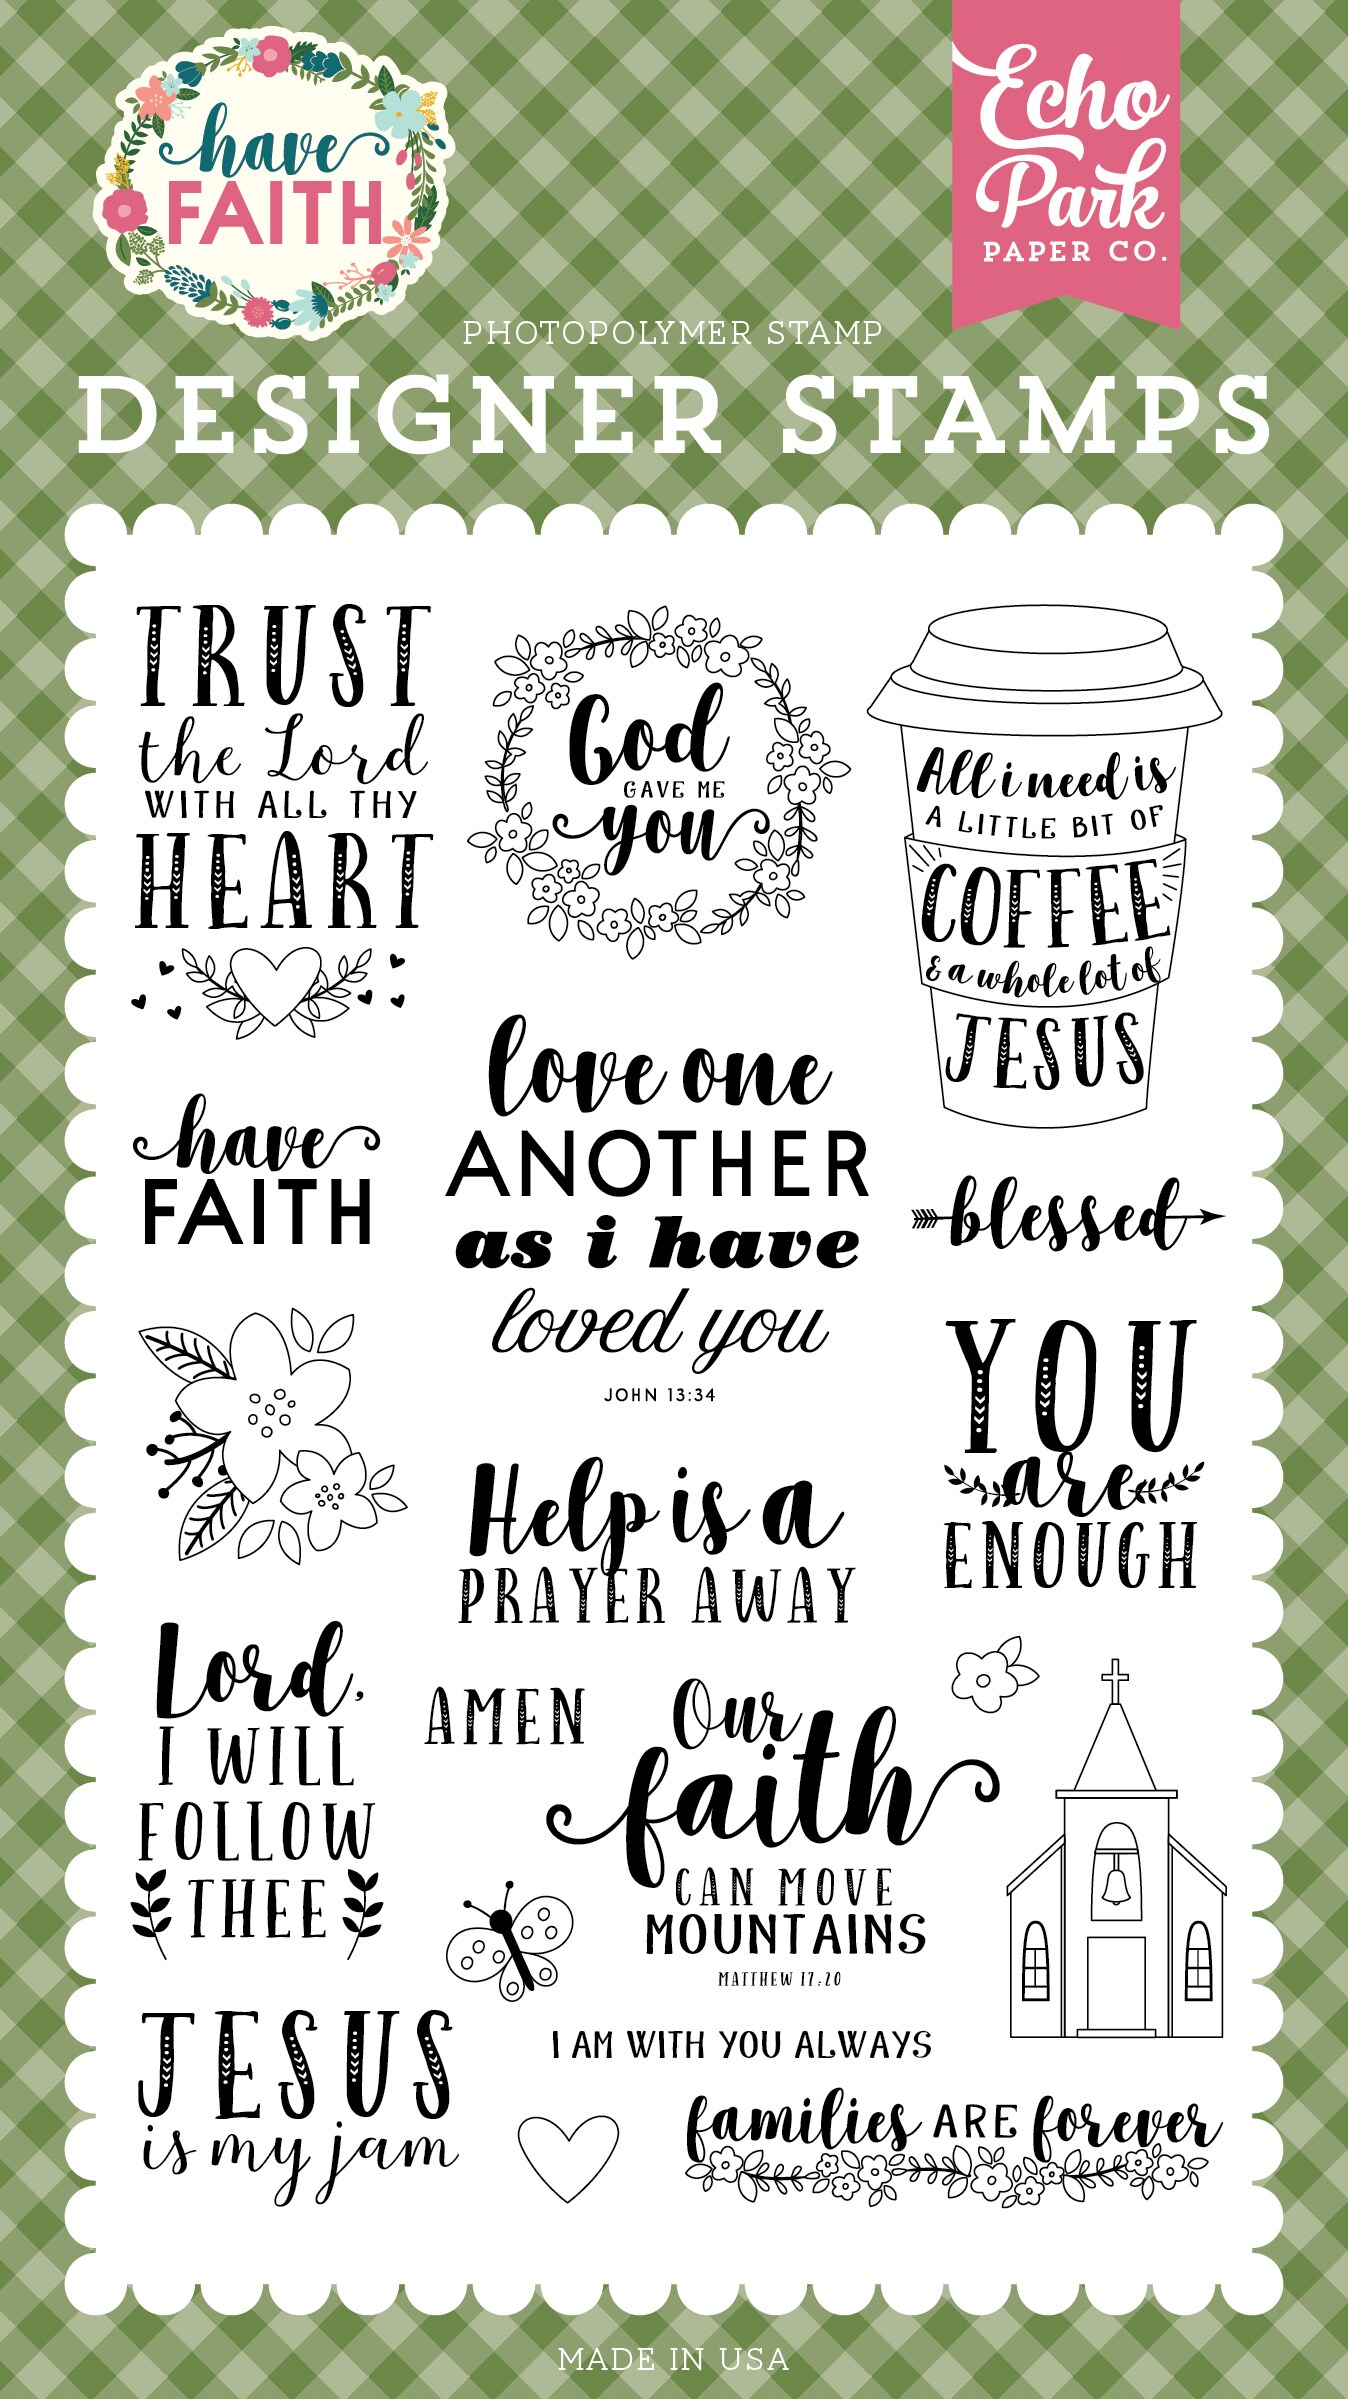 have
FAITH
Echo
Park
PAPER CO.
PHOTOPOLYMER STAMP
DESIGNER STAMPS
TRUST
the Lord
WITH ALL THY
HEART
God
GAVE ME
you
All i need is
A LITTLE BIT OF
COFFEE
& a whole lot of
JESUS
have
FAITH
love one
ANOTHER
as i have
loved you
JOHN 13:34
blessed
YOU
are
ENOUGH
Help is a
PRAYER AWAY
Lord,
I WILL
FOLLOW
THEE
AMEN
Our
faith
CAN MOVE
MOUNTAINS
MATTHEW 17:20
JESUS
is my jam
I AM WITH YOU ALWAYS
families ARE forever
MADE IN USA